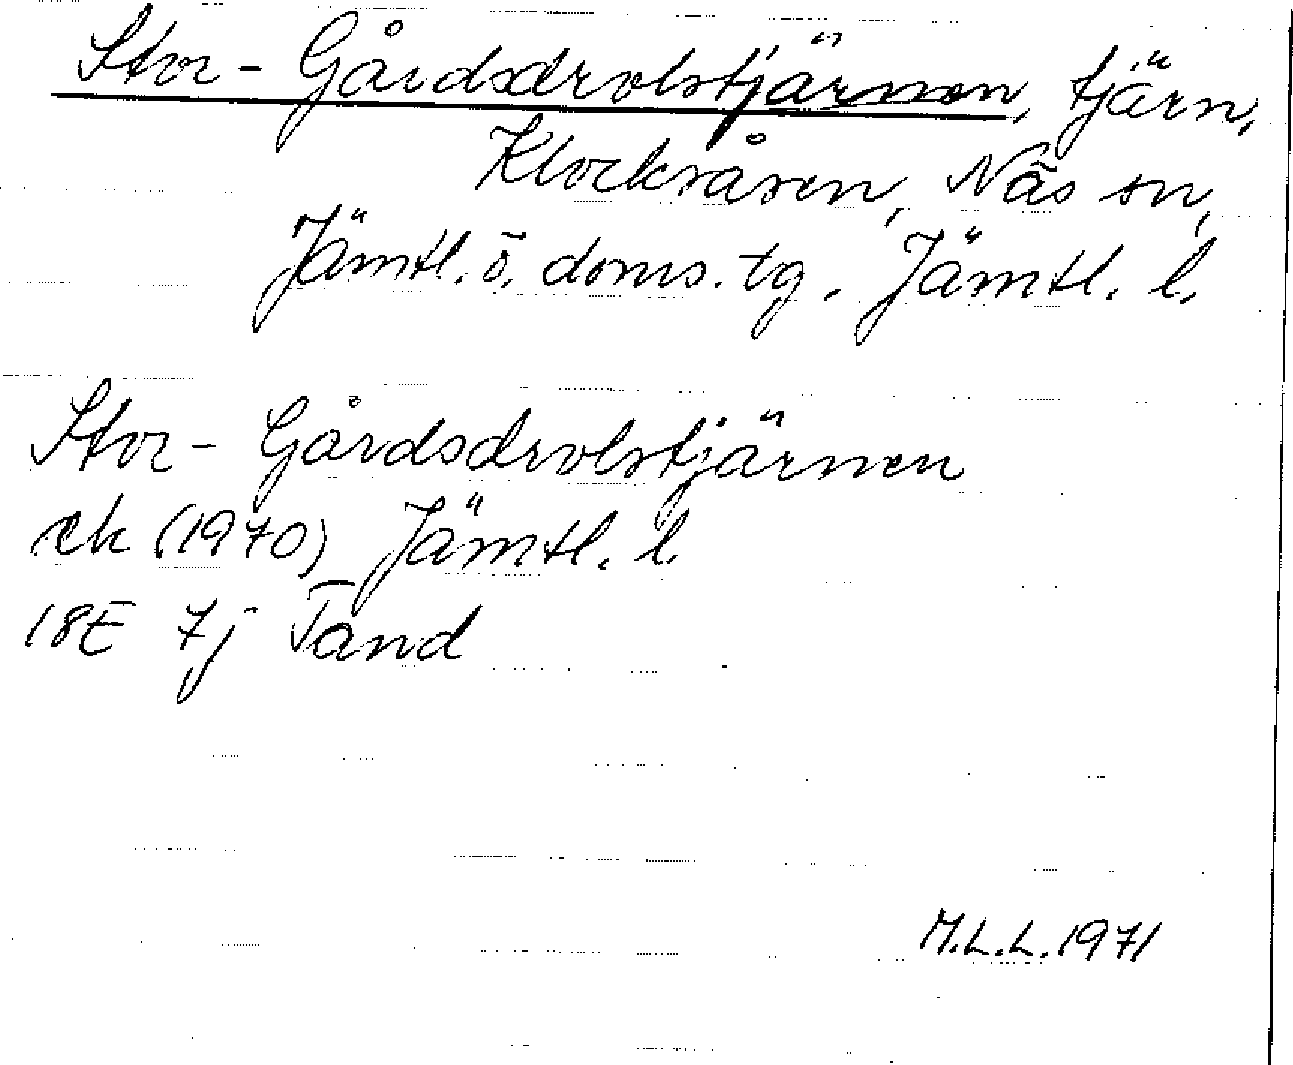 Stor-Gårdsdrolstjärnen, tjärn,
Klockråsen, Näs sn,
Jämtl. ö. doms. tg. Jämtl. l.
Stor-Gårdsdrolstjärnen
ek (1970) Jämtl. l.
18E 7j Tand
M.L.L. 1971